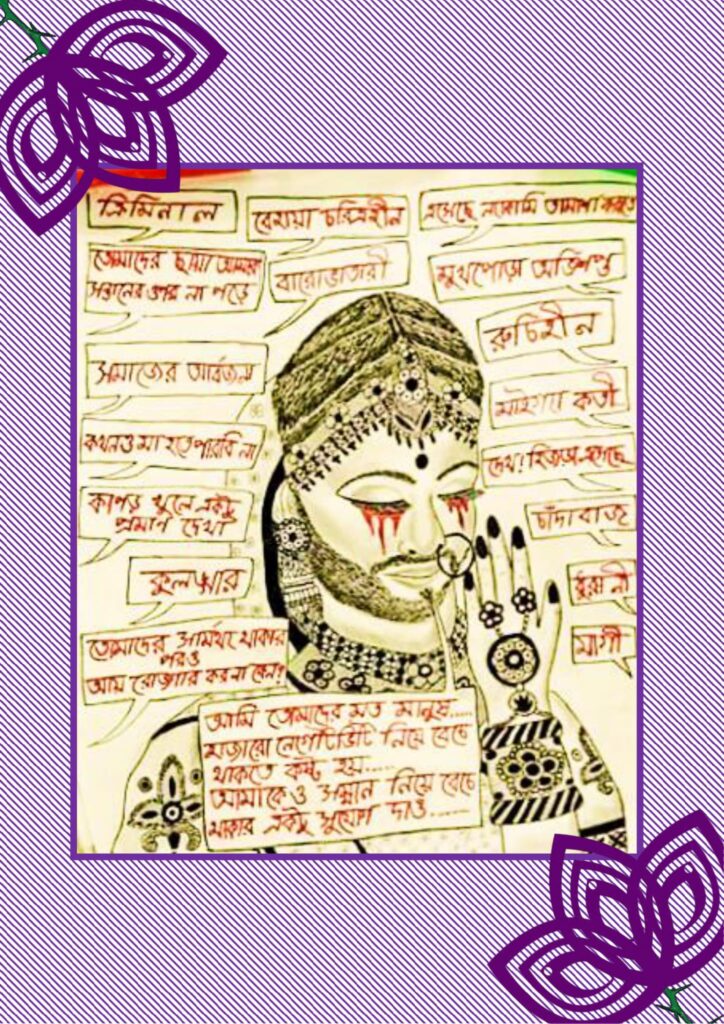 ক্রিমিনাল
বেহায়া চরিত্রহীন
এসেছে নষ্টামি তামাশা করতে
তোমাদের ছায়া আমার
সন্তানের ওপর না পড়ে
বারোভাতারী
মুখপোড়া অভিশপ্ত
রুচিহীন
সমাজের আর্বজনা
কখনও মা হতে পারবি না
দেখ! হিজড়া এসেছে
কাপড় খুলে একটু
প্রমাণ দেখা
চাঁদাবাজ
কুলঙ্গার
তোমাদের সামর্থ্য থাকার
পরও
আয় রোজগার করনা কেন?
মাগী
আমি তোমাদের মত মানুষ.....
হাজারো নেগেটিভিটি নিয়ে বেচে
থাকতে কষ্ট হয়.....
আমাকেও সম্মান নিয়ে বেচে
থাকার একটু সুযোগ দাও.......